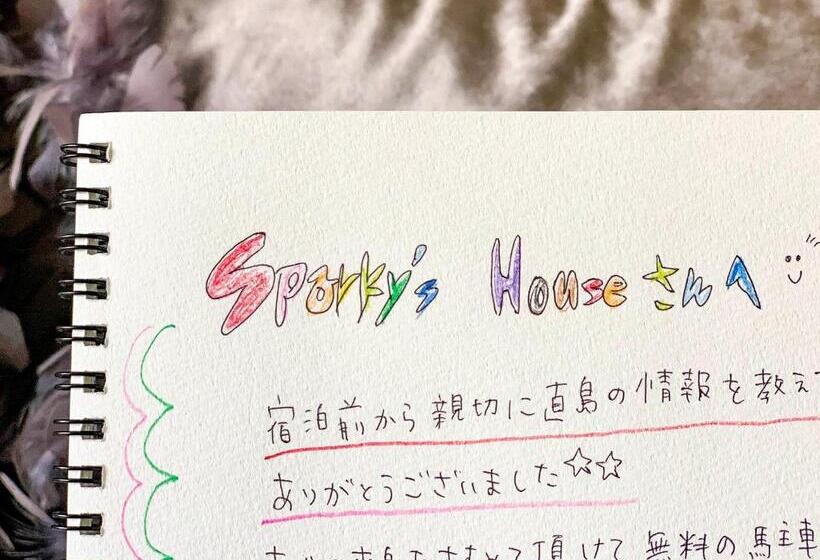 Sporky's House さんへ
宿泊前から親切に直島の情報を教えて
ありがとうございました☆☆
頂けて 無料の 駐車